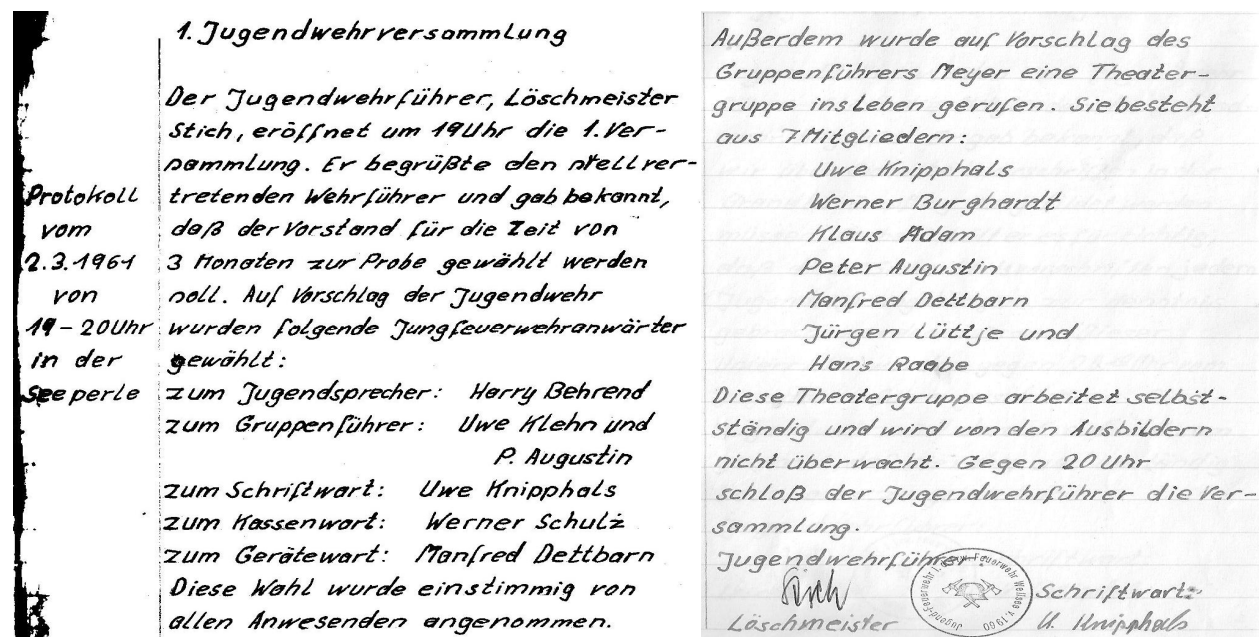 1. Jugendwehrversammlung
Der Jugendwehrführer, Löschmeister
Stich, eröffnet um 19 Uhr die 1. Ver-
sammlung. Er begrüßte den stellver-
tretenden Wehrführer und gab bekannt,
daß der Vorstand für die Zeit von
3 Monaten zur Probe gewählt werden
soll. Auf Vorschlag der Jugendwehr
wurden folgende Jungfeuerwehranwärter
gewählt:
zum Jugendsprecher: Harry Behrend
zum Gruppenführer: Uwe Klehn und
P. Augustin
zum Schriftwart: Uwe Knipphals
zum Kassenwart: Werner Schulz
zum Gerätewart: Manfred Dettbarn
Diese Wahl wurde einstimmig von
allen Anwesenden angenommen.
Protokoll
vom
2.3.1961
von
19 - 20 Uhr
in der
Seeperle
Außerdem wurde auf Vorschlag des
Gruppenführers Meyer eine Theater-
gruppe ins Leben gerufen. Sie besteht
aus 7 Mitgliedern:
Uwe Knipphals
Werner Burghardt
Klaus Adam
Peter Augustin
Manfred Dettbarn
Jürgen Lüttje und
Hans Raabe
Diese Theatergruppe arbeitet selbst-
ständig und wird von den Ausbildern
nicht überwacht. Gegen 20 Uhr
schloß der Jugendwehrführer die Ver-
sammlung.
Jugendwehrführer:
Stich
Löschmeister
Schriftwart:
U. Knipphals